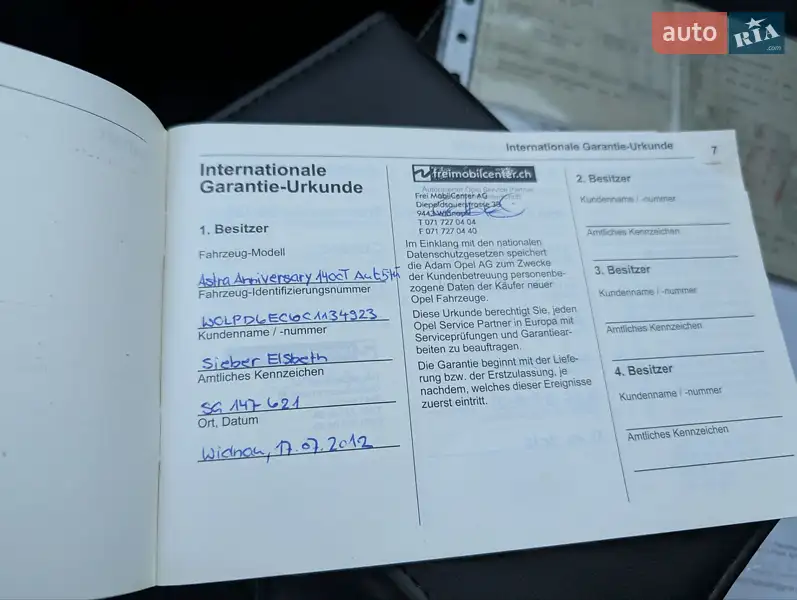 auto
RIA
.com
Internationale Garantie-Urkunde 7
Internationale
Garantie-Urkunde
1. Besitzer
Fahrzeug-Modell
Astra Anniversary 1400T Aut5tT
Fahrzeug-Identifizierungsnummer
WOLPD6EC6C1134923
Kundenname / -nummer
Sieber Elsbeth
Amtliches Kennzeichen
SG 147 621
Ort, Datum
Widnau, 17.07.2012
freimobilcenter.ch
Frei MobilCenter AG
Diepoldsauerstrasse
9443 Widnau
T 071 727 04 04
F 071 727 04 40
Im Einklang mit den nationalen
Datenschutzgesetzen speichert
die Adam Opel AG zum Zwecke
der Kundenbetreuung personenbe-
zogene Daten der Käufer neuer
Opel Fahrzeuge.
Diese Urkunde berechtigt Sie, jeden
Opel Service Partner in Europa mit
Serviceprüfungen und Garantiear-
beiten zu beauftragen.
Die Garantie beginnt mit der Liefe-
rung bzw. der Erstzulassung, je
nachdem, welches dieser Ereignisse
zuerst eintritt.
2. Besitzer
Kundenname / -nummer
Amtliches Kennzeichen
3. Besitzer
Kundenname / -nummer
Amtliches Kennzeichen
4. Besitzer
Kundenname / -nummer
Amtliches Kennzeichen